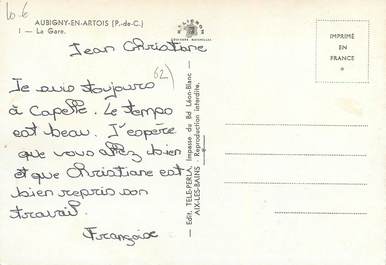 lo-6
AUBIGNY-EN-ARTOIS (P.-de-C.)
1 - La Gare.
Jean Christiane
62)
Je suis toujours
à Capelle. Le temps
est beau. J'espère
que vous allez bien
et que Christiane est
bien repris son
travail.
Françoise
Edit. TELE-PERLA, Impasse du Bd Léon-Blanc
AIX-LES-BAINS - Reproduction interdite.
IMPRIMÉ
EN
FRANCE